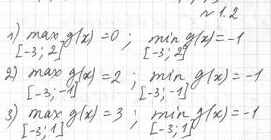 № 1.2
1) max g(x) = 0 ; min g(x) = -1
[-3; 2] [-3; 2]
2) max g(x) = 2 ; min g(x) = -1
[-3; -1] [-3; -1]
3) max g(x) = 3 ; min g(x) = -1
[-3; 1] [-3; 1]